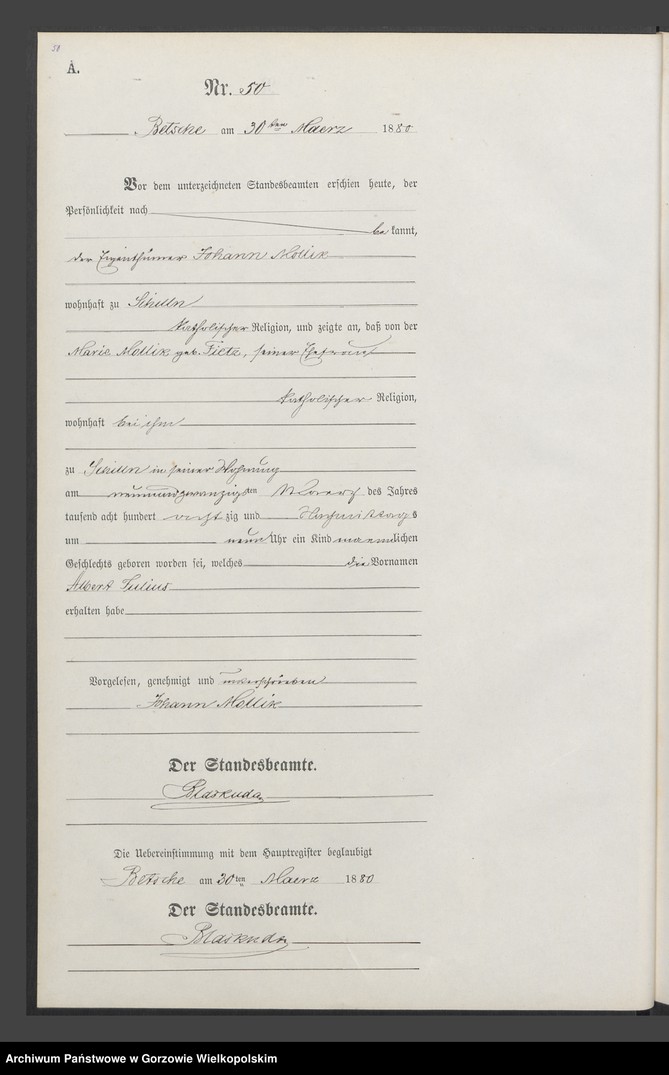 50
A.
Nr. 50
Betsche am 30ten Maerz 1880
Vor dem unterzeichneten Standesbeamten erschien heute, der
Persönlichkeit nach
be kannt,
der Eigenthümer Johann Mollik
wohnhaft zu Schilln
katholischer Religion, und zeigte an, daß von der
Marie Mollik geb. Fietz, seiner Ehefrau
katholischer Religion,
wohnhaft bei ihm
zu Schilln in seiner Wohnung
am neunundzwanzigsten Maerz des Jahres
tausend acht hundert achtzig und Nachmittags
um neun Uhr ein Kind maennlichen
Geschlechts geboren worden sei, welches die Vornamen
Albert Julius
erhalten habe
Vorgelesen, genehmigt und unterschrieben
Johann Mollik
Der Standesbeamte.
Blaskuda
Die Uebereinstimmung mit dem Hauptregister beglaubigt
Betsche am 30ten Maerz 1880
Der Standesbeamte.
Blaskuda
Archiwum Państwowe w Gorzowie Wielkopolskim